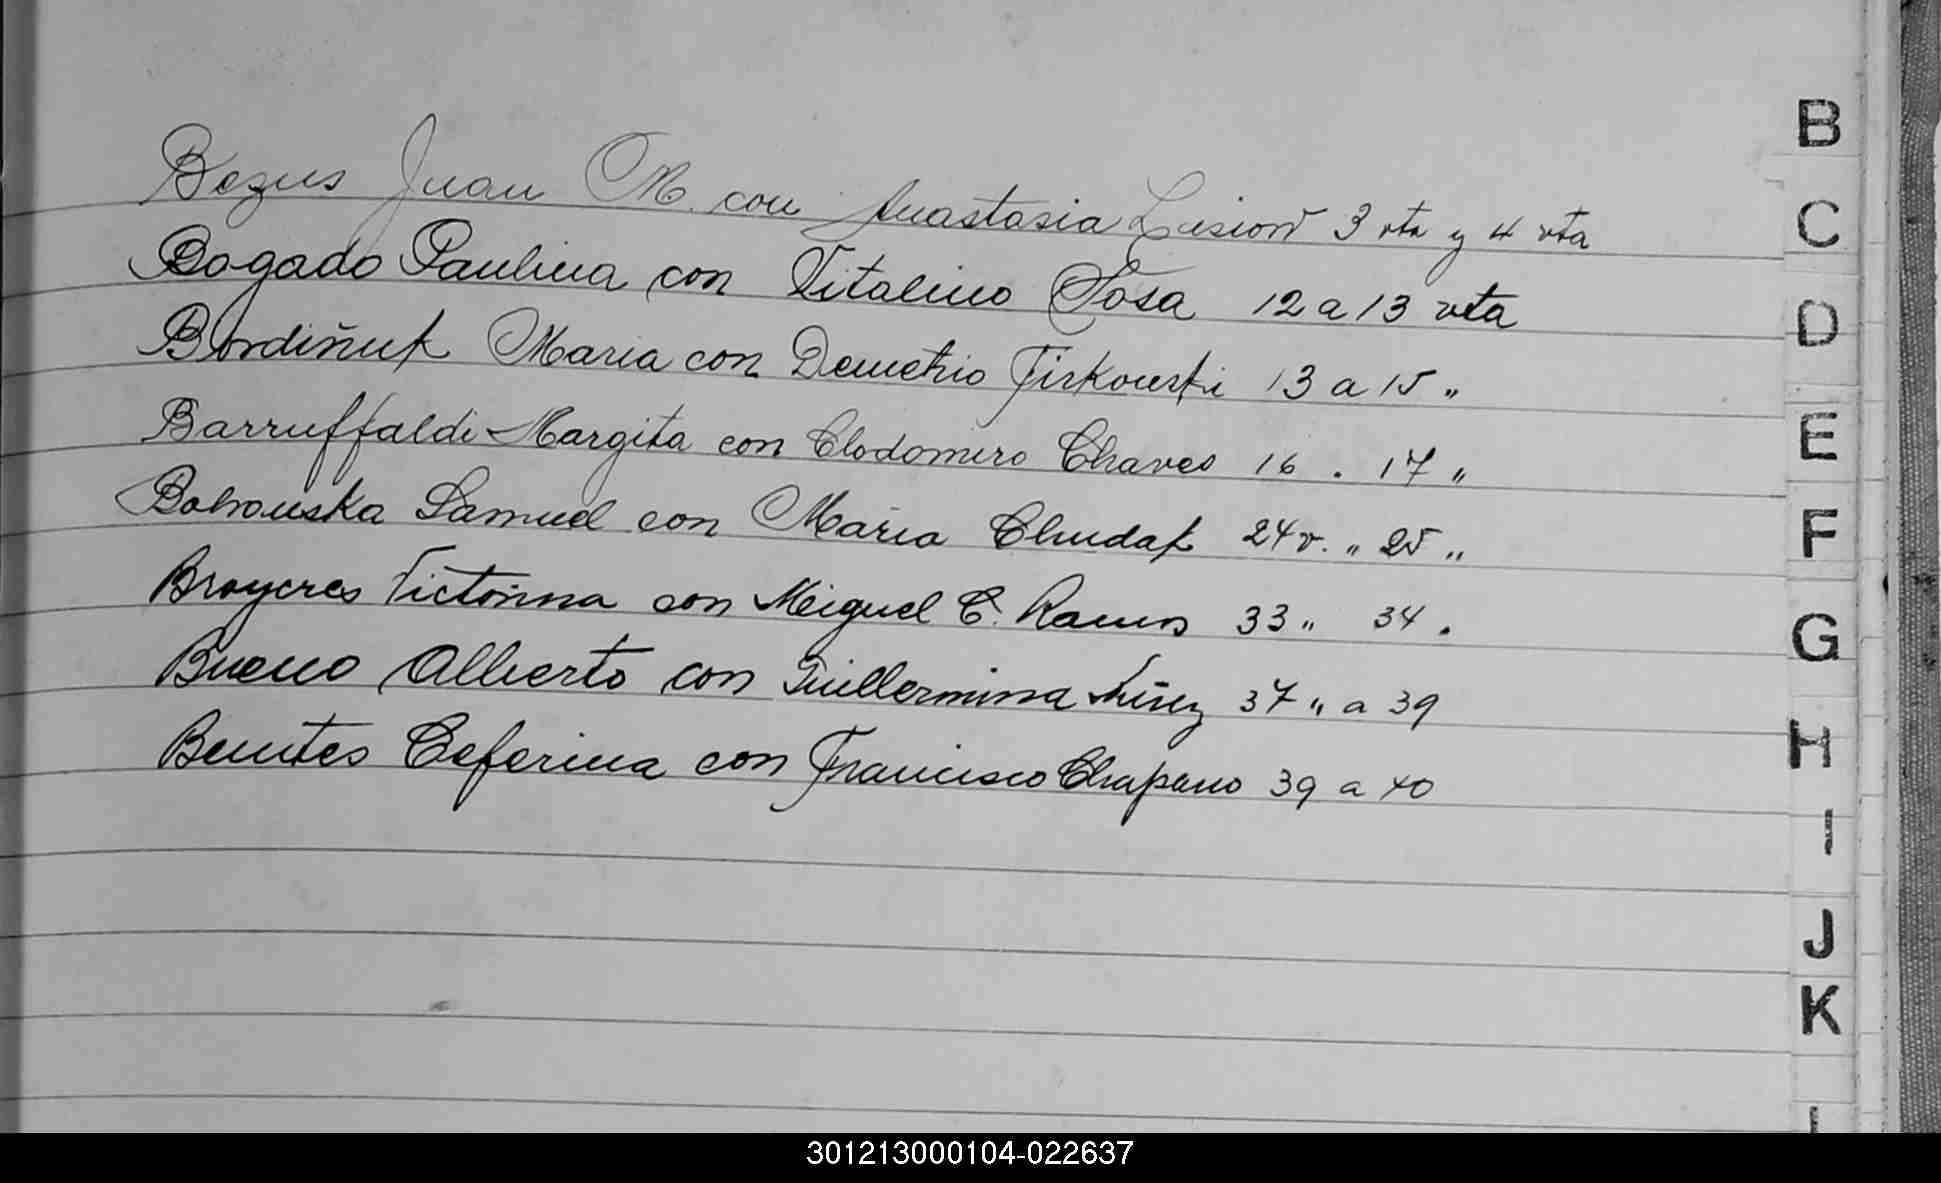 Bezus Juan M. con Anastasia 3 vta y 4 vta
Bogado Paulina con Vitalino Sosa 12 a 13 vta
Maria con Demetrio 13 a 15 "
Barruffaldi Margita con Clodomiro Chaves 16 . 17 "
Samuel con Maria 24 v. " 25 "
Victorina con Meiguel C. Ramos 33 " 34 .
Bueno Alberto con Guillermina Núñez 37 " a 39
Benites Ceferina con Francisco 39 a 40
B
C
D
E
F
G
H
I
J
K
301213000104-022637